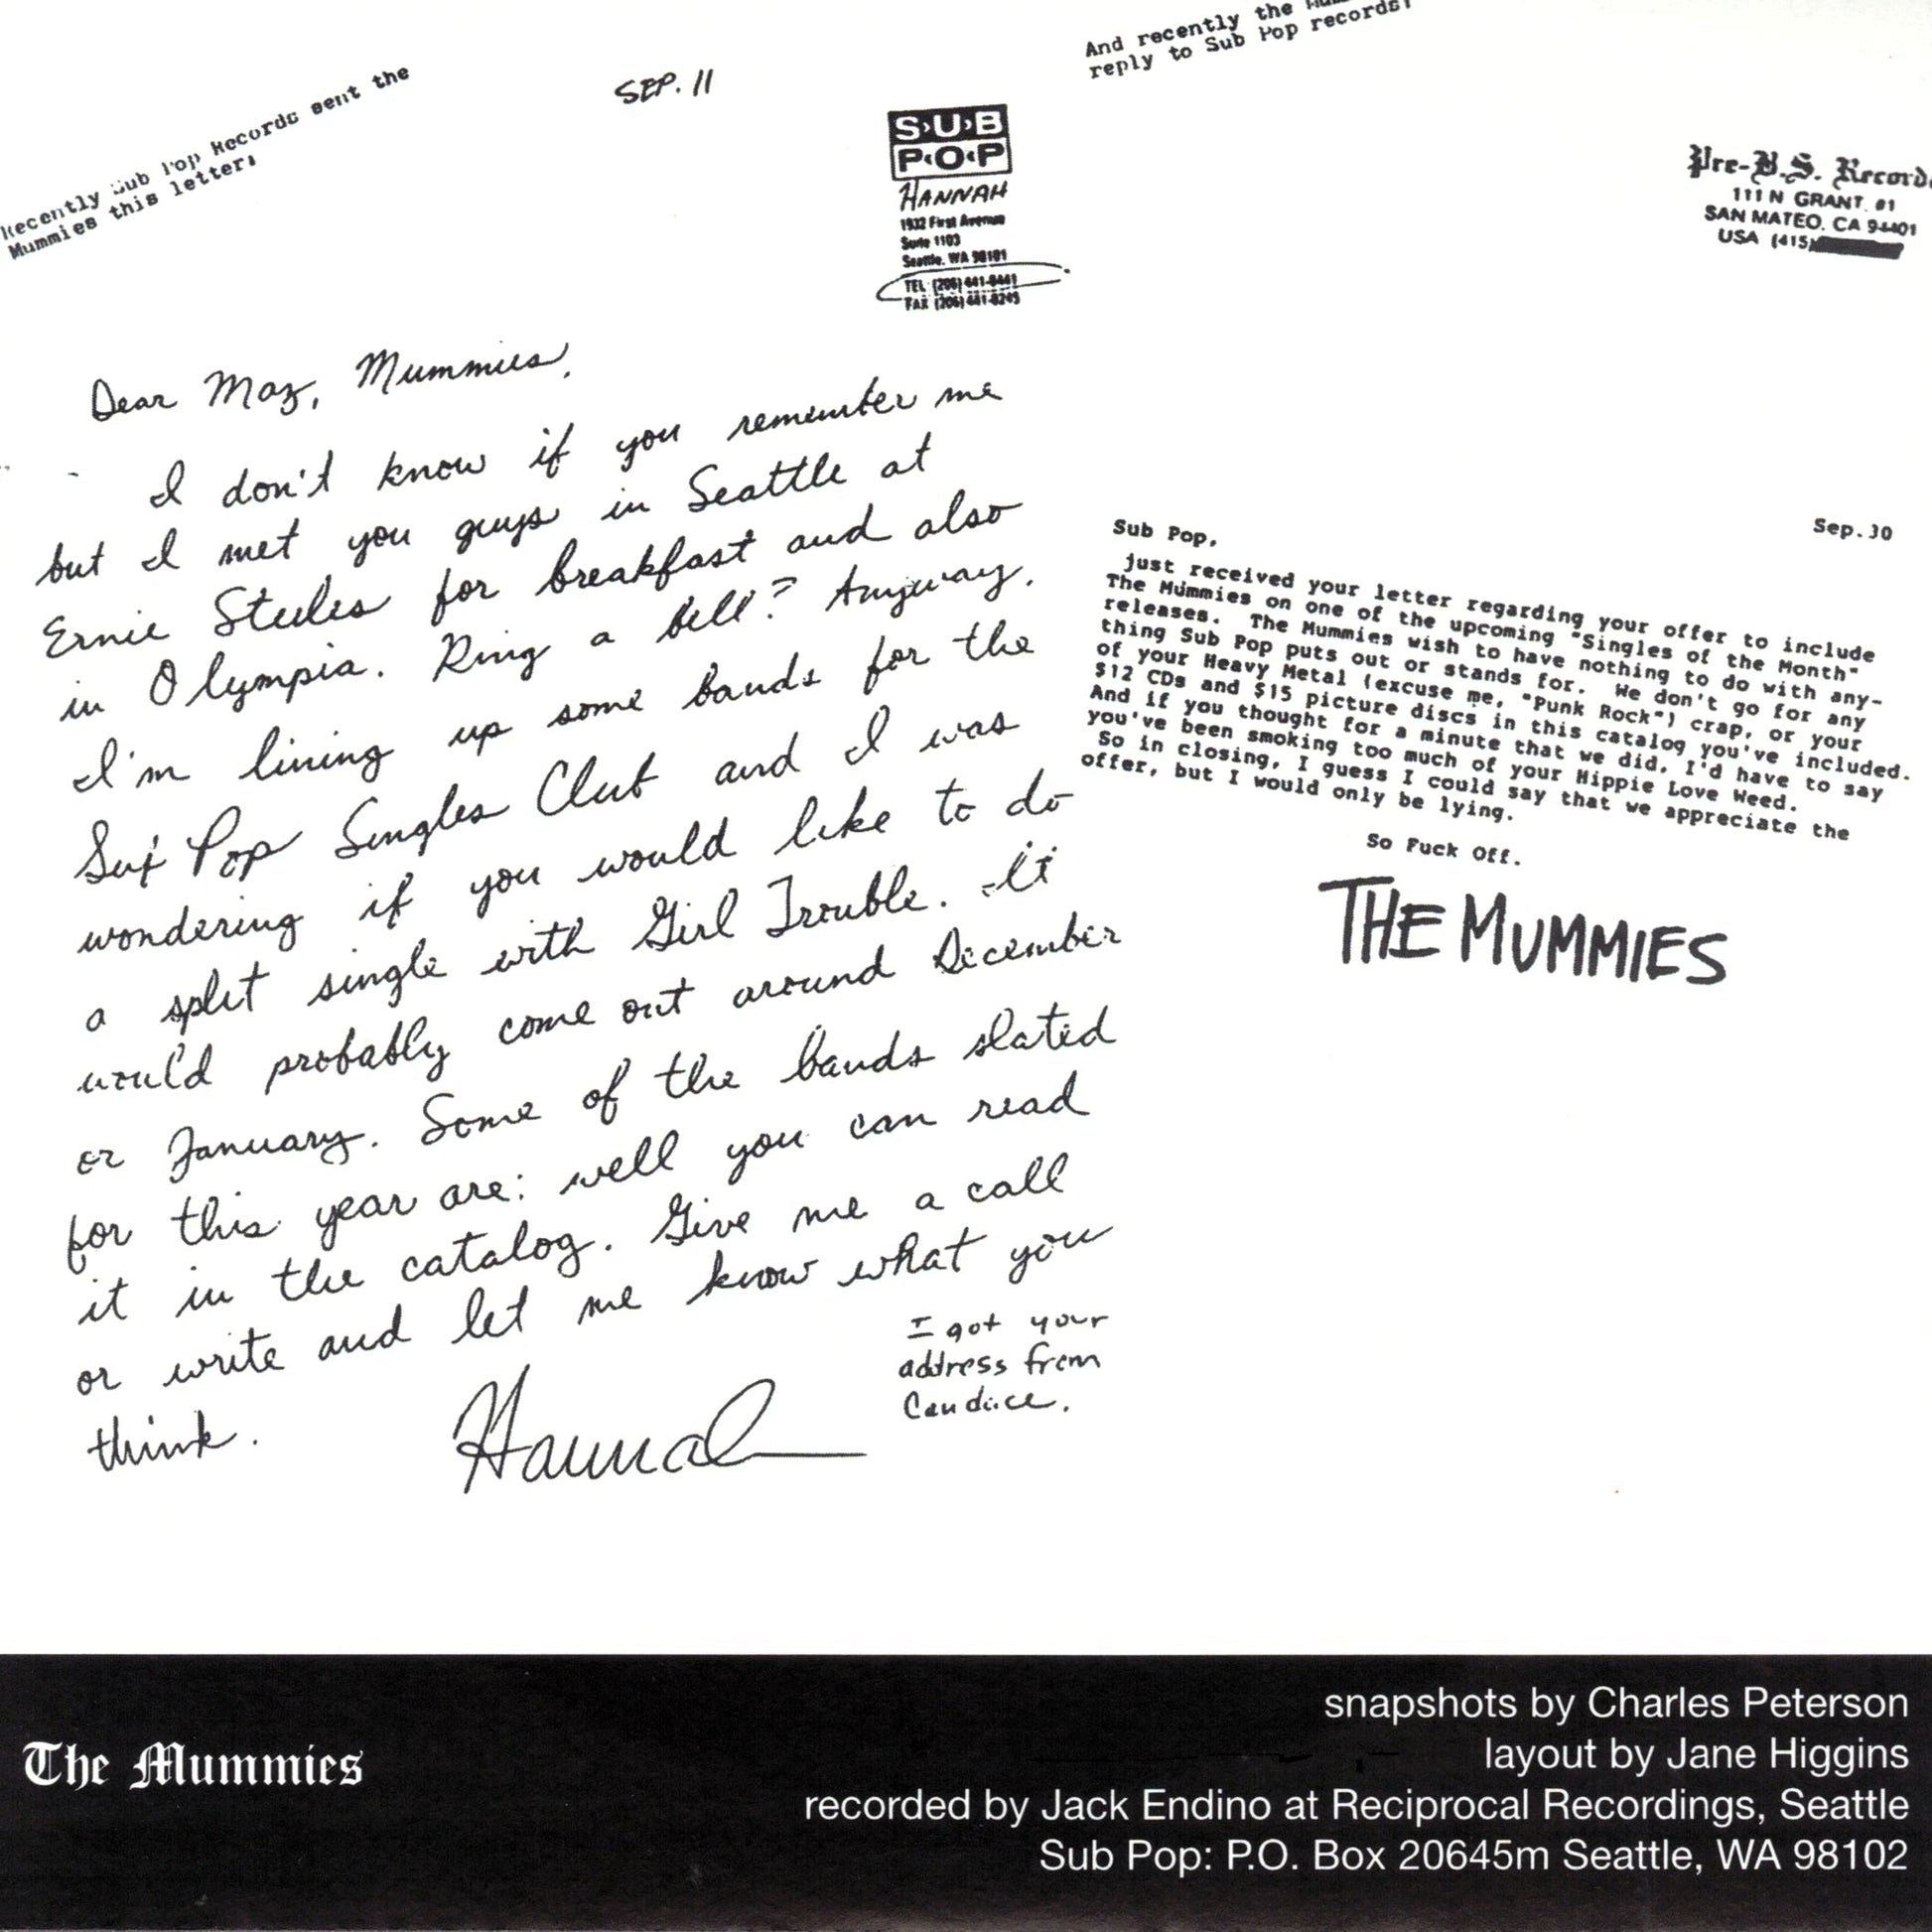 Recently Sub Pop Records sent the
Mummies this letter:
SEP. 11
SUB
POP
HANNAH
1932 First Avenue
Suite 1103
Seattle, WA 98101
TEL (206) 441-8441
FAX (206) 441-8245
Dear Maz, Mummies,
I don't know if you remember me
but I met you guys in Seattle at
Ernie Steeles for breakfast and also
in Olympia. Ring a bell? Anyway,
I'm lining up some bands for the
Sub Pop Singles Club and I was
wondering if you would like to do
a split single with Girl Trouble. It
would probably come out around December
or January. Some of the bands slated
for this year are: well you can read
it in the catalog. Give me a call
or write and let me know what you
think.
Hannah
I got your
address from
Candice.
And recently the
reply to Sub Pop records:
Pre-B.S. Record
111 N GRANT. #1
SAN MATEO. CA 94401
USA (415)
Sep.30
Sub Pop,
just received your letter regarding your offer to include
The Mummies on one of the upcoming "Singles of the Month"
releases. The Mummies wish to have nothing to do with any-
thing Sub Pop puts out or stands for. We don't go for any
of your Heavy Metal (excuse me, "Punk Rock") crap, or your
$12 CDs and $15 picture discs in this catalog you've included.
And if you thought for a minute that we did, I'd have to say
you've been smoking too much of your Hippie Love Weed.
So in closing, I guess I could say that we appreciate the
offer, but I would only be lying.
So Fuck Off.
THE MUMMIES
The Mummies
snapshots by Charles Peterson
layout by Jane Higgins
recorded by Jack Endino at Reciprocal Recordings, Seattle
Sub Pop: P.O. Box 20645m Seattle, WA 98102